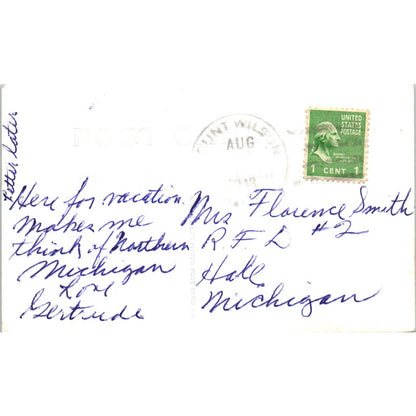 Letter later
POST C
OUNT WILSON
AUG
UNITED
STATES
POSTAGE
1 CENT 1
Here for vacation
makes me
think of Northern
Michigan
Love
Gertrude
Mrs Florence Smith
R. F. D. #2
Michigan